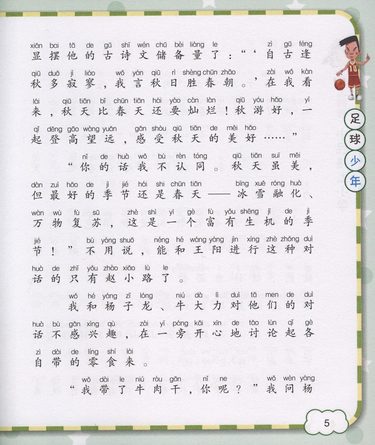 xiǎn bai tā de gǔ shī wén chǔ bèi liàng le zì gǔ féng
显摆他的古诗文储备量了：“‘自古逢
qiū duō jì liáo wǒ yán qiū rì shèng chūn zhāo zài wǒ kàn
秋多寂寥，我言秋日胜春朝。’在我看
lái qiū tiān bǐ chūn tiān hái yào càn làn qiū yóu hǎo yì
来，秋天比春天还要灿烂！秋游好，一
qǐ dēng gāo wàng yuǎn gǎn shòu qiū tiān de měi hǎo
起登高望远，感受秋天的美好……”
nǐ de huà wǒ bú rèn tóng qiū tiān suī měi
“你的话我不认同。秋天虽美，
dàn zuì hǎo de jì jié hái shi chūn tiān bīng xuě róng huà
但最好的季节还是春天——冰雪融化、
wàn wù fù sū zhè shì yí gè fù yǒu shēng jī de jì
万物复苏，这是一个富有生机的季
jié bú yòng shuō néng hé wáng yáng jìn xíng zhè zhǒng duì
节！”不用说，能和王阳进行这种对
huà de zhǐ yǒu zhào xiǎo lù le
话的只有赵小路了。
wǒ hé yáng zǐ lóng niú dà lì duì tā men de duì
我和杨子龙、牛大力对他们的对
huà bù gǎn xìng qù zài yì páng kāi xīn de tǎo lùn qǐ gè
话不感兴趣，在一旁开心地讨论起各
zì dài de líng shí lái
自带的零食来。
wǒ dài le niú ròu gān nǐ ne wǒ wèn yáng
“我带了牛肉干，你呢？”我问杨
足球少年
5